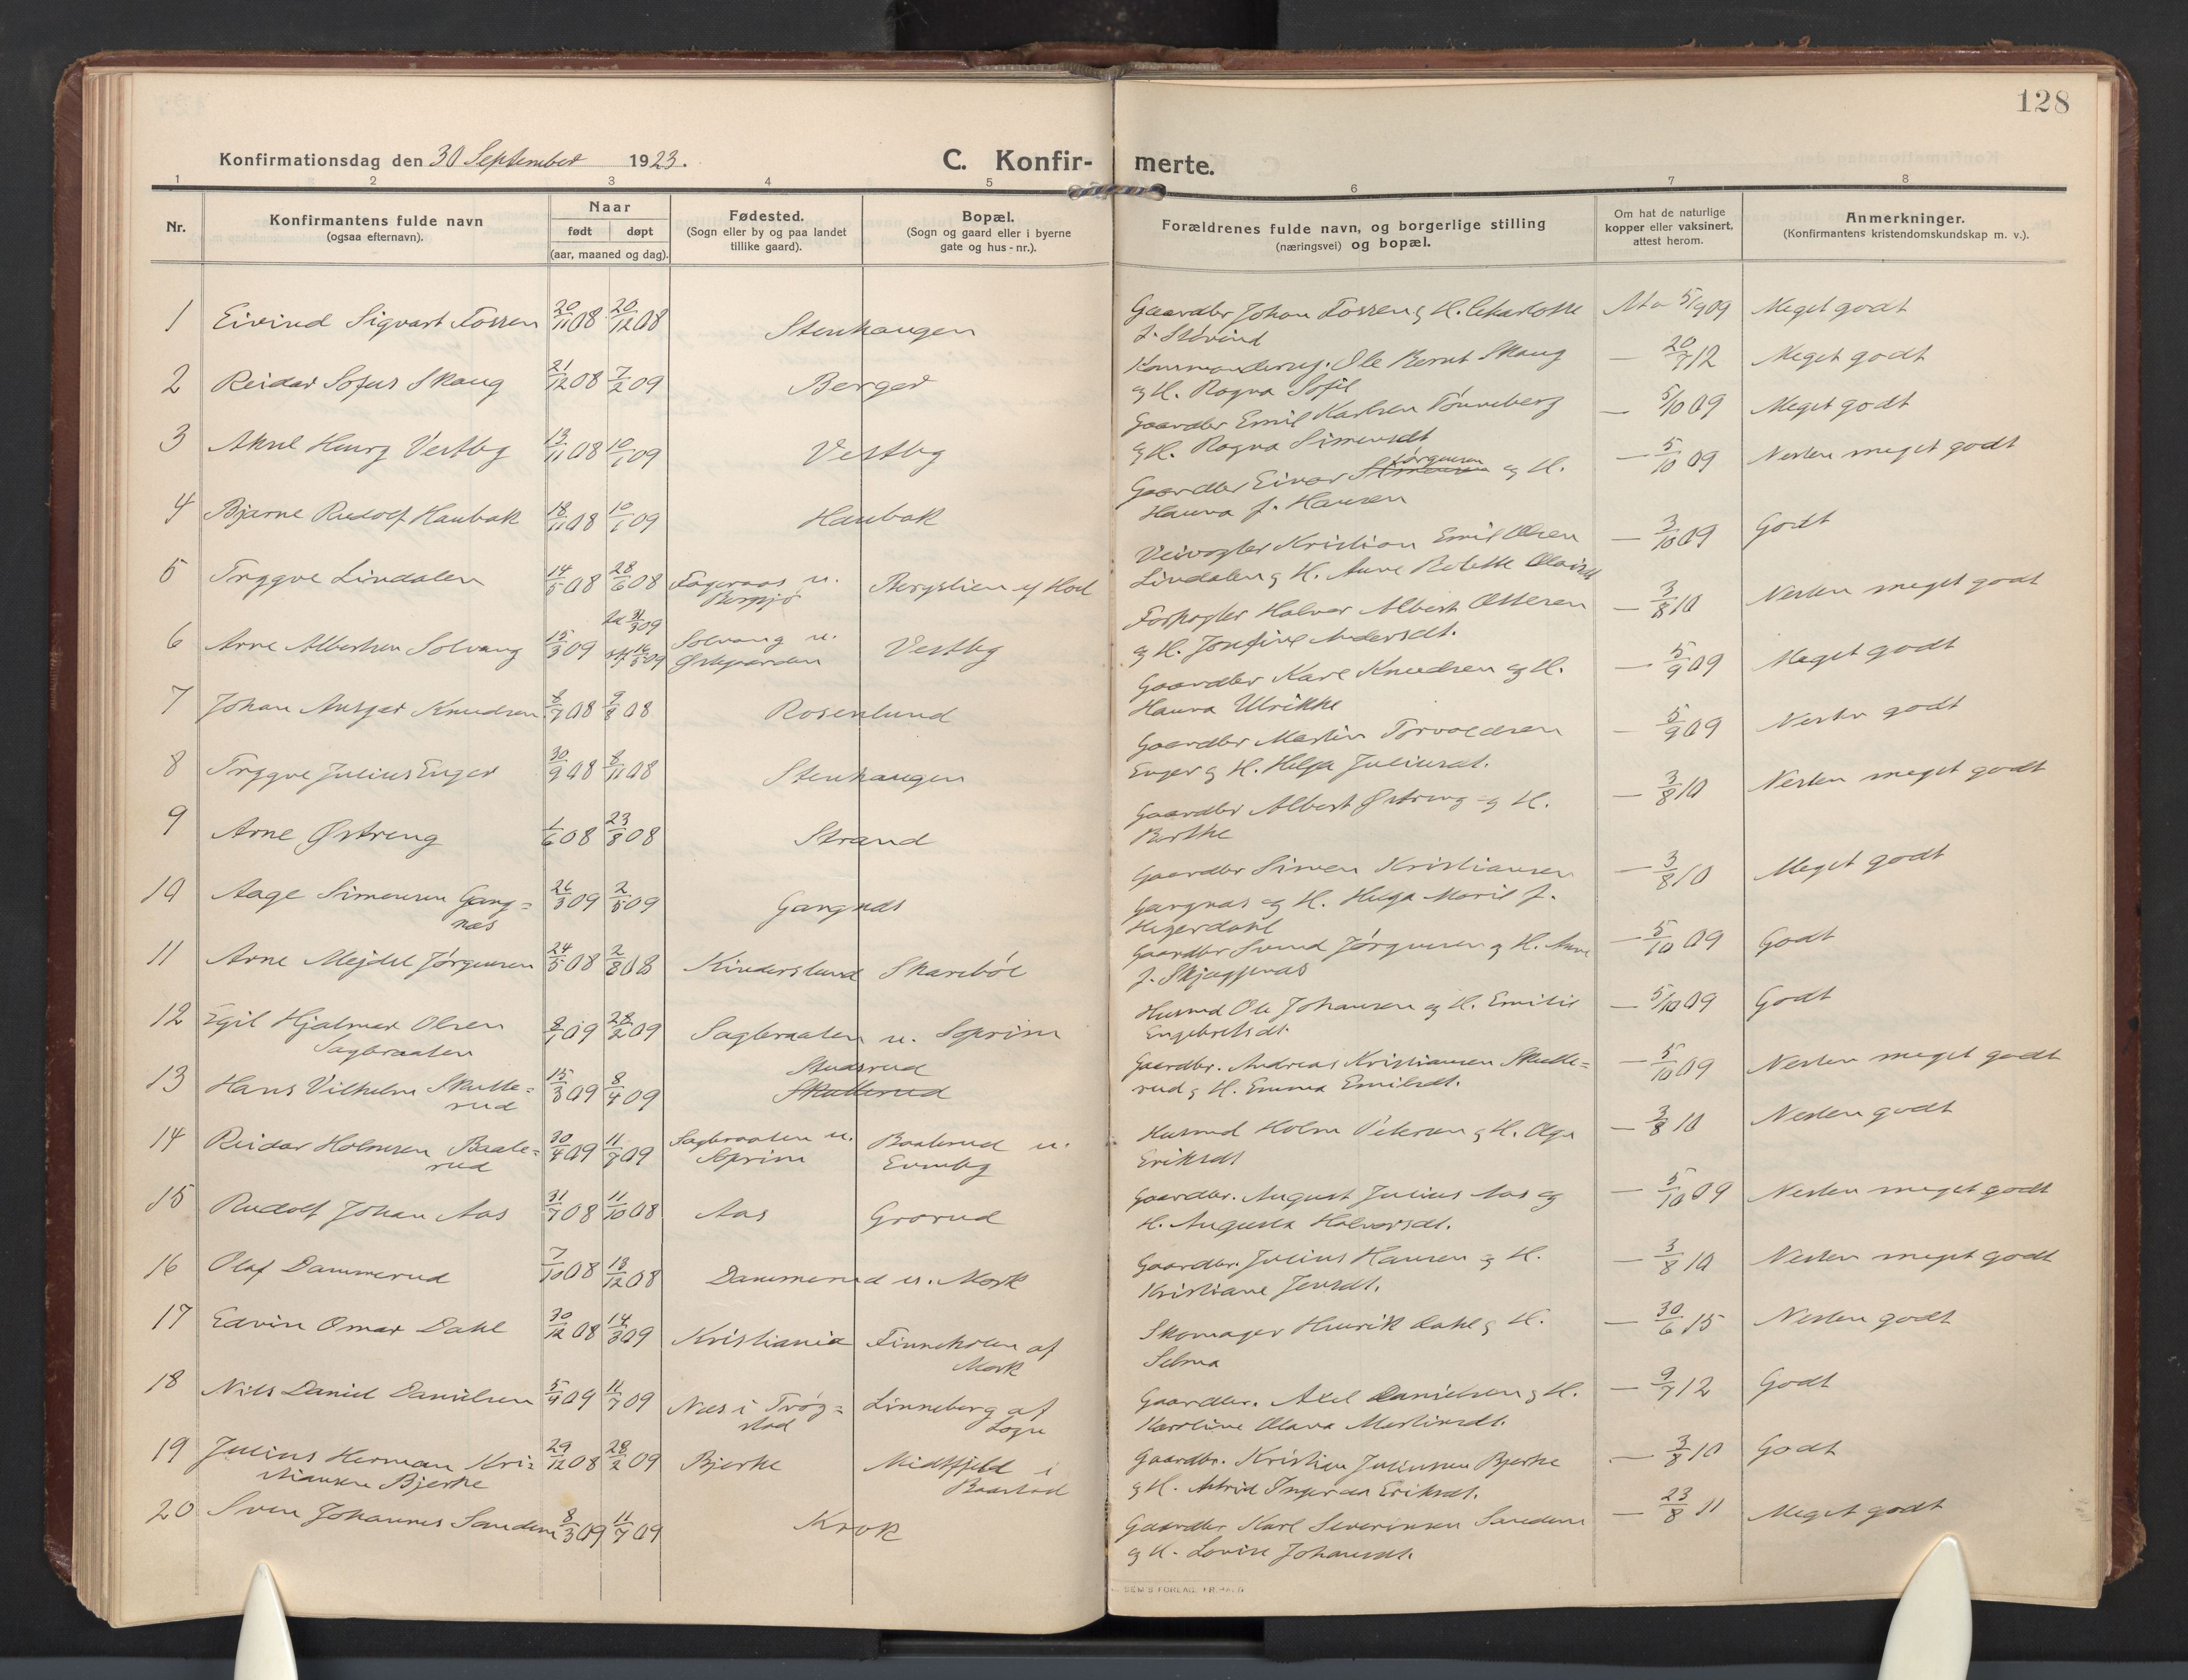 128
Konfirmationsdag den 30 September 1923.
C. Konfir-merte.
1 2 3 4 5 6 7 8
Nr.
Konfirmantens fulde navn
(ogsaa efternavn).
Naar
født døpt
(aar, maaned og dag).
Fødested.
(Sogn eller by og paa landet
tillike gaard).
Bopæl.
(Sogn og gaard eller i byerne
gate og hus-nr.).
Forældrenes fulde navn, og borgerlige stilling
(næringsvei) og bopæl.
Om hat de naturlige
kopper eller vaksinert,
attest herom.
Anmerkninger.
(Konfirmantens kristendomskundskap m. v.).
1 Eivind Sigvart Fossen 20/11 08 20/12 08 Stenhaugen
Gaardbr Johan Fossen & H. Charlotte 5/9 09 Meget godt
2 Reidar Sofus Skaug 21/12 08 7/2 09 Berger
Ole Bernt Skaug — 20/7 12 Meget godt
og H. Ragna Sofie
3 Henry Vestby 13/11 08 10/1 09 Vestby
Gaardbr Emil Karlsen Tønneberg — 5/10 09 Meget godt
og H. Ragna Simensdt
4 Bjarne Rudolf Haubak 18/11 08 10/1 09 Haubak
Gaardbr Einar Jørgensen og H. — 5/10 09 Nesten meget godt
Hanna f. Hansen
5 Tryggve Lindalen 14/5 08 28/6 08 Fageraas u. Bergstien Hol
Veivogter Kristian Emil Olsen — 3/10 09 Godt
Lindalen & H. Anne
6 Arne Albertsen Solvang 15/3 09 31/3 09 16/5 09 Solvang u. Vestby
Østegaarden
Halvor Albert Ottesen — 3/8 10 Nesten meget godt
og H. Josefine Andersdt.
7 Johan Ansgar Knudsen 7 08 9/8 08 Rosenlund
Gaardbr Karl Knudsen og H. — 5/9 09 Meget godt
Hanna Ulrikke
8 Tryggve Julius Enger 30/9 08 8/11 08 Stenhaugen
Gaardbr Martin Torvaldsen — 5/9 09 Nesten godt
Enger & H. Helga Juliusdt.
9 Arne Østreng 1/6 08 23/8 08 Strand
Gaardbr Albert Østreng og H. — 3/8 10 Nesten meget godt
Berthe
10 Aage Simensen Gang= 26/3 09 2/5 09 Gangnæs
næs
Gaardbr Simen Kristiansen — 3/8 10 Meget godt
Gangnæs og H. Helga Marie f.
Hegerdahl
11 Arne Mejdel Jørgensen 24/5 08 2/8 08 Kinderslund Skarebøl
Gaardbr Svend Jørgensen & H. Anne — 5/10 09 Godt
12 Egil Hjalmar Olsen 8/1 09 28/2 09 Sagbraaten u. Soprim
Sagbraaten
Husmd Ole Johansen og H. Emilie — 5/10 09 Godt
Engebretsdt.
13 Hans Vilhelm Skulle= 15/3 09 8/4 09 Studsrud
rud Skullerud
Gaardbr. Andreas Kristiansen Skulle= — 5/10 09 Nesten meget godt
rud & H. Emma Emilsdt.
14 Reidar Holmsen Baale= 30/4 09 11/7 09 Sagbraaten u. Baalerud u.
rud Soprim Evenby
Husmd Holm Petersen & H. Olga — 3/8 10 Nesten godt
Eriksdt
15 Rudolf Johan Aas 31/7 08 11/10 08 Aas Grorud
Gaardbr. August Julius Aas og — 5/10 09 Nesten meget godt
H. Augusta Halvorsdt.
16 Olaf Dammerud 7/10 08 13/12 08 Dammerud u. Mork
Gaardbr. Julius Hansen og H. — 3/8 10 Nesten meget godt
Kristiane Jensdt.
17 Edvin Omar Dahl 30/12 08 14/3 09 Kristiania Finneholen af
Mork
Skomager Henrik Dahl & H. — 30/6 15 Nesten godt
Selma
18 Nils Daniel Danielsen 5/4 09 11/7 09 Næs i Trøg= Linneberg af
stad
Gaardbr. Axel Danielsen & H. — 9/7 12 Godt
Karoline Olava Martinsdt.
19 Julius Herman Kri= 29/12 08 28/2 09 Bjerke Midtfjeld i
stiansen Bjerke Baastad
Gaardbr. Kristian Juliussen Bjerke — 3/8 10 Godt
og H. Astrid Ingerda Eriksdt.
20 Sven Johannes Sandem 8/3 09 11/7 09 Krok
Gaardbr Karl Severinsen Sandem — 23/8 11 Meget godt
og H. Lovise Johansdt.
SEM'S FORLAG, FR.HALD